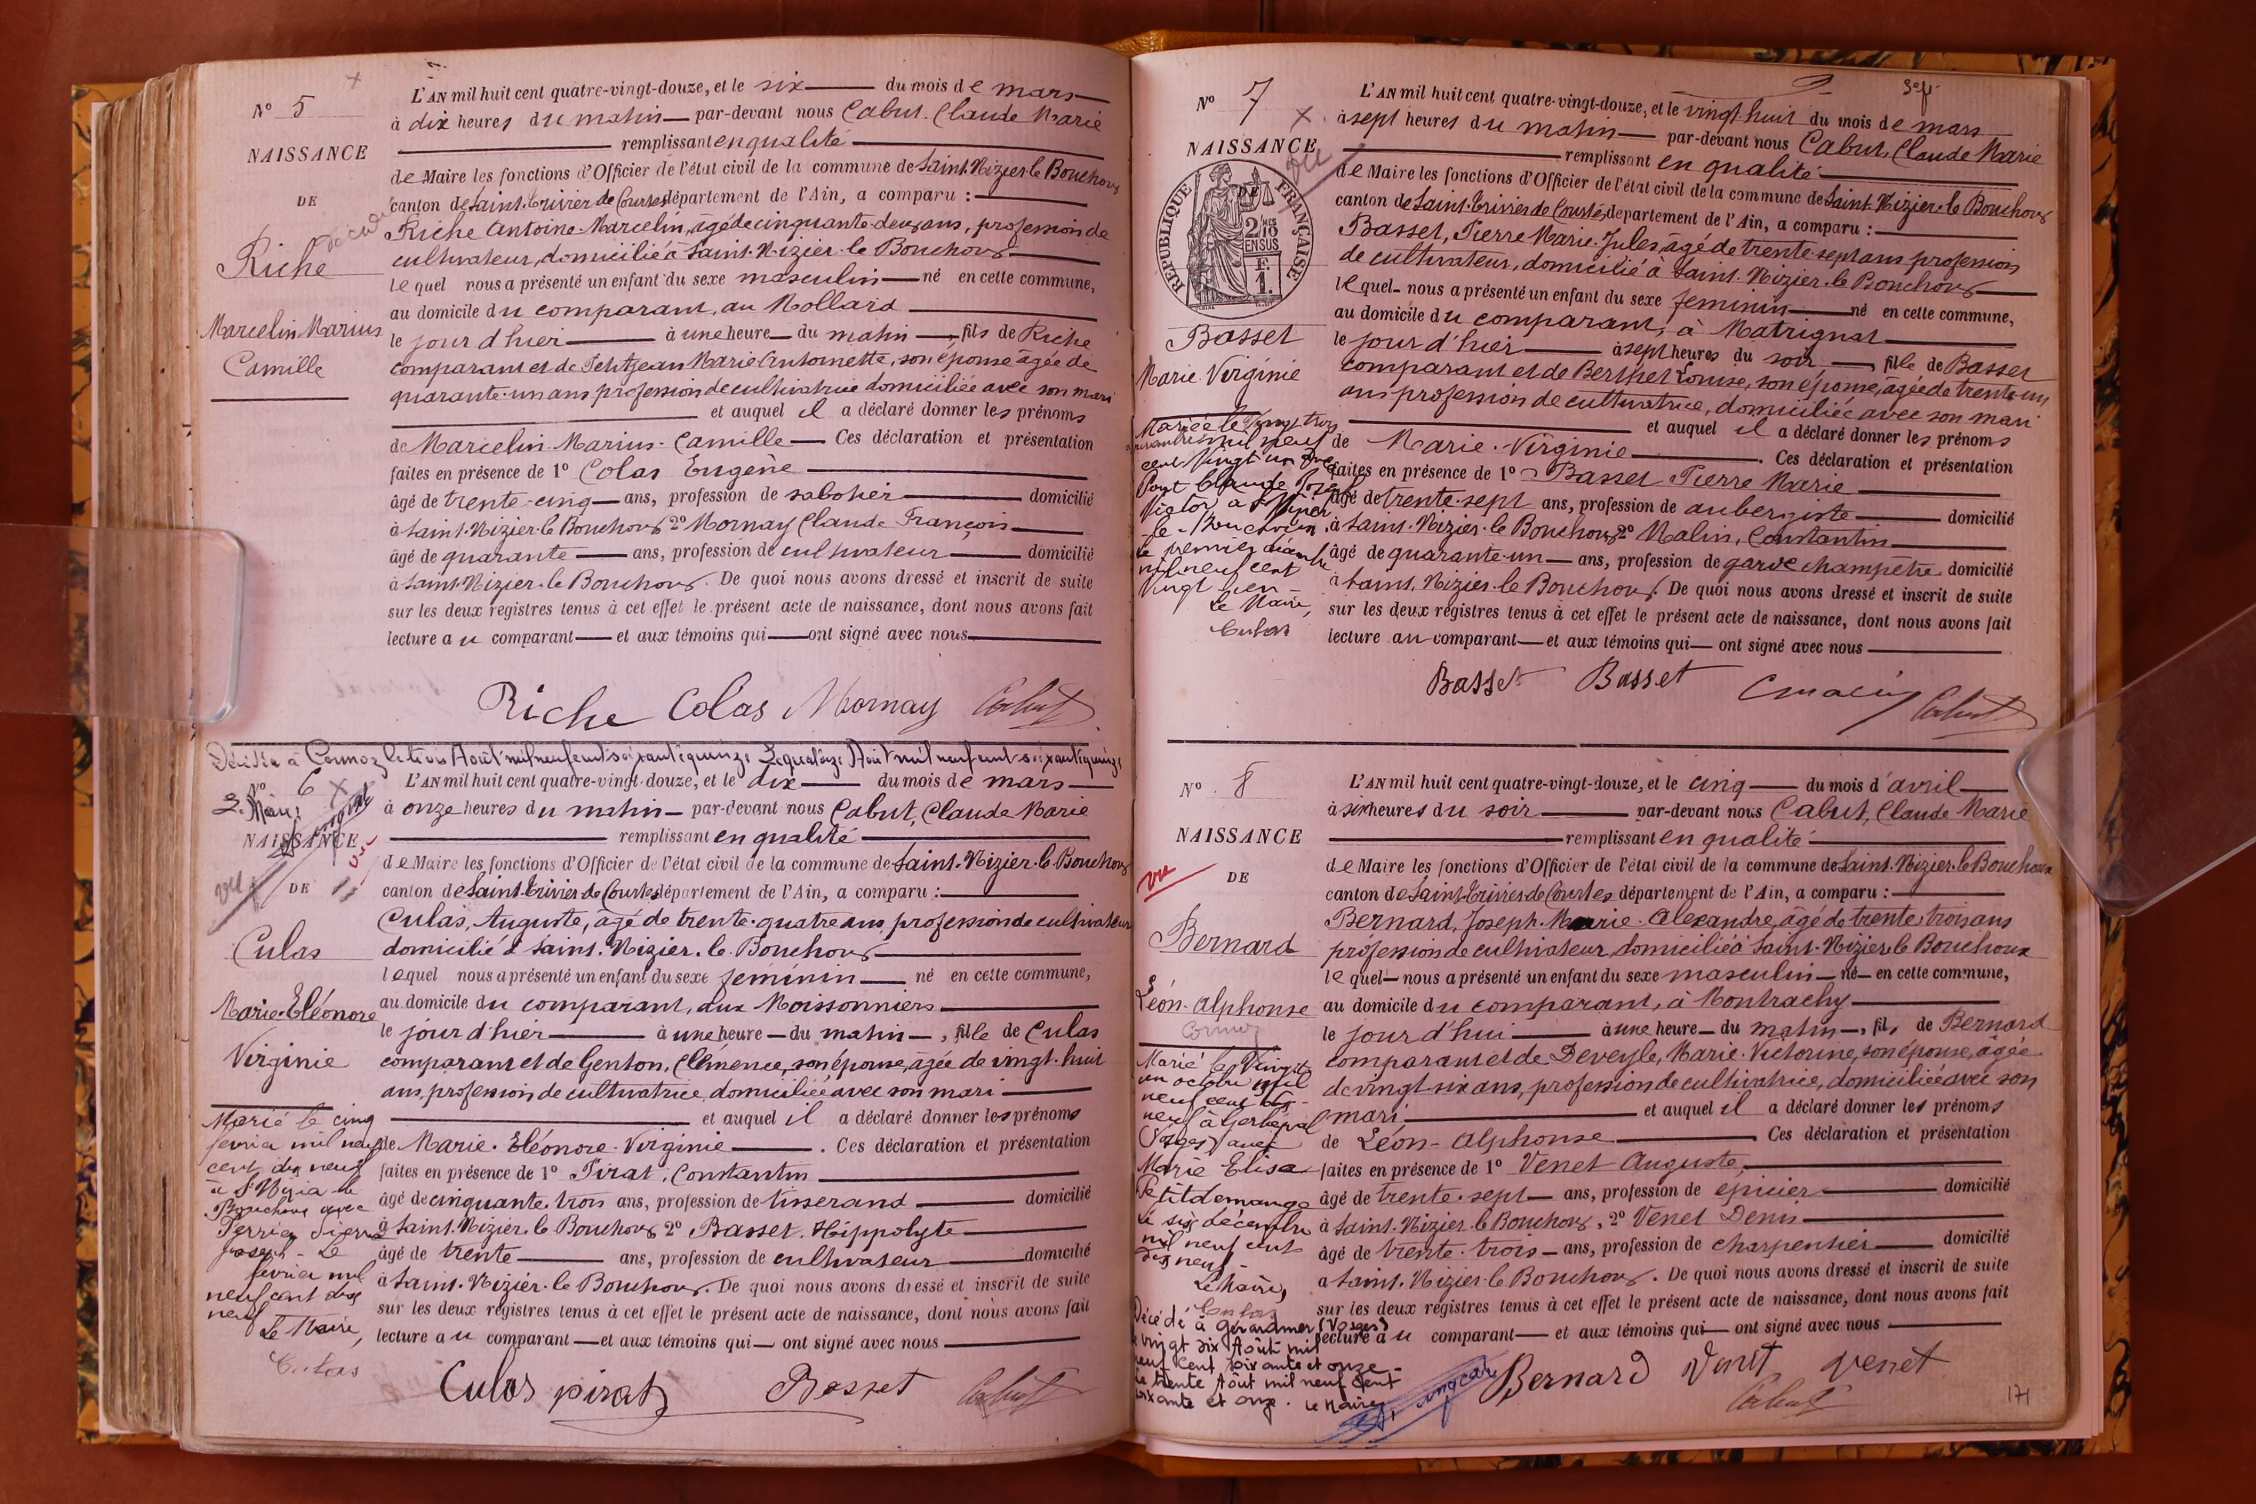 N° 5
NAISSANCE
DE
Riche
Marcelin Marius
Camille
L'AN mil huit cent quatre-vingt-douze, et le six du mois de mars
à dix heures du matin par-devant nous Cabut, Claude Marie
remplissant en qualité
de Maire les fonctions d'Officier de l'état civil de la commune de Saint-Nizier-le-Bouchoux
canton de Saint-Trivier-de-Courtes département de l'Ain, a comparu :
Riche Antoine Marcelin, âgé de cinquante-deux ans, profession de
cultivateur, domicilié à Saint-Nizier-le-Bouchoux
lequel nous a présenté un enfant du sexe masculin né en cette commune,
au domicile du comparant, au Mollard
le jour d'hier à une heure du matin, fils de Riche
comparant et de Petitjean Marie Antoinette, son épouse âgée de
quarante-un ans profession de cultivatrice domiciliée avec son mari
et auquel il a déclaré donner les prénoms
de Marcelin-Marius-Camille Ces déclaration et présentation
faites en présence de 1° Colas Eugène
âgé de trente-cinq ans, profession de sabotier domicilié
à Saint-Nizier-le-Bouchoux 2° Mornay Claude François
âgé de quarante ans, profession de cultivateur domicilié
à Saint-Nizier-le-Bouchoux. De quoi nous avons dressé et inscrit de suite
sur les deux registres tenus à cet effet le présent acte de naissance, dont nous avons fait
lecture au comparant et aux témoins qui ont signé avec nous
Riche Colas Mornay Cabut
Décédée à Cormoz le trois Août mil neuf cent soixante quinze Le quatorze Août mil neuf cent soixante quinze
Le Maire
N° 6
NAISSANCE
vu
DE
Culas
Marie-Eléonore
Virginie
Marié le cinq
février mil neuf
cent dix neuf
à St Nizier le
Bouchoux avec
Perrier Pierre
Joseph - Le
février mil
neuf cent dix
neuf
Le Maire,
L'AN mil huit cent quatre-vingt-douze, et le dix du mois de mars
à onze heures du matin par-devant nous Cabut, Claude Marie
remplissant en qualité
de Maire les fonctions d'Officier de l'état civil de la commune de Saint-Nizier-le-Bouchoux
canton de Saint-Trivier-de-Courtes département de l'Ain, a comparu :
Culas, Auguste, âgé de trente-quatre ans, profession de cultivateur
domicilié à Saint-Nizier-le-Bouchoux
lequel nous a présenté un enfant du sexe féminin né en cette commune,
au domicile du comparant, aux Moissonniers
le jour d'hier à une heure du matin, fille de Culas
comparant et de Genton, Clémence, son épouse, âgée de vingt-huit
ans, profession de cultivatrice, domiciliée avec son mari
et auquel il a déclaré donner les prénoms
de Marie-Eléonore-Virginie. Ces déclaration et présentation
faites en présence de 1° Pirat, Constantin
âgé de cinquante-trois ans, profession de tisserand domicilié
à Saint-Nizier-le-Bouchoux 2° Basset, Hippolyte
âgé de trente ans, profession de cultivateur domicilié
à Saint-Nizier-le-Bouchoux. De quoi nous avons dressé et inscrit de suite
sur les deux registres tenus à cet effet le présent acte de naissance, dont nous avons fait
lecture au comparant et aux témoins qui ont signé avec nous
Culas pirat Basset Cabut
N° 7
NAISSANCE
DE
RÉPUBLIQUE FRANÇAISE
2/10 EN SUS
F. 1.
Basset
Marie Virginie
Mariée le vingt trois
mil neuf
cent vingt un avec
Pont Claude Joseph
Victor à St Nizier
le Bouchoux
le premier
mil neuf cent
vingt un
Le Maire,
L'AN mil huit cent quatre-vingt-douze, et le vingt-huit du mois de mars
à sept heures du matin par-devant nous Cabut, Claude Marie
remplissant en qualité
de Maire les fonctions d'Officier de l'état civil de la commune de Saint-Nizier-le-Bouchoux
canton de Saint-Trivier-de-Courtes, département de l'Ain, a comparu :
Basset, Pierre Marie-Jules, âgé de trente-sept ans profession
de cultivateur, domicilié à Saint-Nizier-le-Bouchoux
lequel nous a présenté un enfant du sexe féminin né en cette commune,
au domicile du comparant, à Matrignat
le jour d'hier à sept heures du soir, fille de Basset
comparant et de Berthet Louise, son épouse, âgée de trente-un
ans profession de cultivatrice, domiciliée avec son mari
et auquel il a déclaré donner les prénoms
de Marie-Virginie. Ces déclaration et présentation
faites en présence de 1° Basset Pierre Marie
âgé de trente-sept ans, profession de aubergiste domicilié
à Saint-Nizier-le-Bouchoux 2° Malin, Constantin
âgé de quarante-un ans, profession de garde champêtre domicilié
à Saint-Nizier-le-Bouchoux. De quoi nous avons dressé et inscrit de suite
sur les deux registres tenus à cet effet le présent acte de naissance, dont nous avons fait
lecture au comparant et aux témoins qui ont signé avec nous
Basset Basset Cmalin Cabut
N° 8
NAISSANCE
vu
DE
Bernard
Léon-Alphonse
Cormoz
Marié le vingt
un octobre mil
neuf cent dix-
neuf à Gerbépal
(Vosges) avec
Marie Elisa
Petitdemange
Le six décembre
mil neuf cent
dix neuf
Le Maire,
Décédé à Gérardmer (Vosges)
le vingt six Août mil
neuf cent soixante et onze -
Le trente Août mil neuf cent
soixante et onze. Le Maire
L'AN mil huit cent quatre-vingt-douze, et le cinq du mois d'avril
à six heures du soir par-devant nous Cabut, Claude Marie
remplissant en qualité
de Maire les fonctions d'Officier de l'état civil de la commune de Saint-Nizier-le-Bouchoux
canton de Saint-Trivier-de-Courtes département de l'Ain, a comparu :
Bernard, Joseph-Marie-Alexandre, âgé de trente-trois ans
profession de cultivateur, domicilié à Saint-Nizier-le-Bouchoux
lequel nous a présenté un enfant du sexe masculin né en cette commune,
au domicile du comparant, à Montrachy
le jour d'hui à une heure du matin, fils de Bernard
comparant et de Deveyle, Marie-Victorine, son épouse, âgée
de vingt-six ans, profession de cultivatrice, domiciliée avec son
mari et auquel il a déclaré donner les prénoms
de Léon-Alphonse Ces déclaration et présentation
faites en présence de 1° Venet Auguste,
âgé de trente-sept ans, profession de épicier domicilié
à Saint-Nizier-le-Bouchoux, 2° Venet Denis
âgé de trente-trois ans, profession de charpentier domicilié
à Saint-Nizier-le-Bouchoux. De quoi nous avons dressé et inscrit de suite
sur les deux registres tenus à cet effet le présent acte de naissance, dont nous avons fait
lecture au comparant et aux témoins qui ont signé avec nous
Bernard Venet Venet
Cabut
171